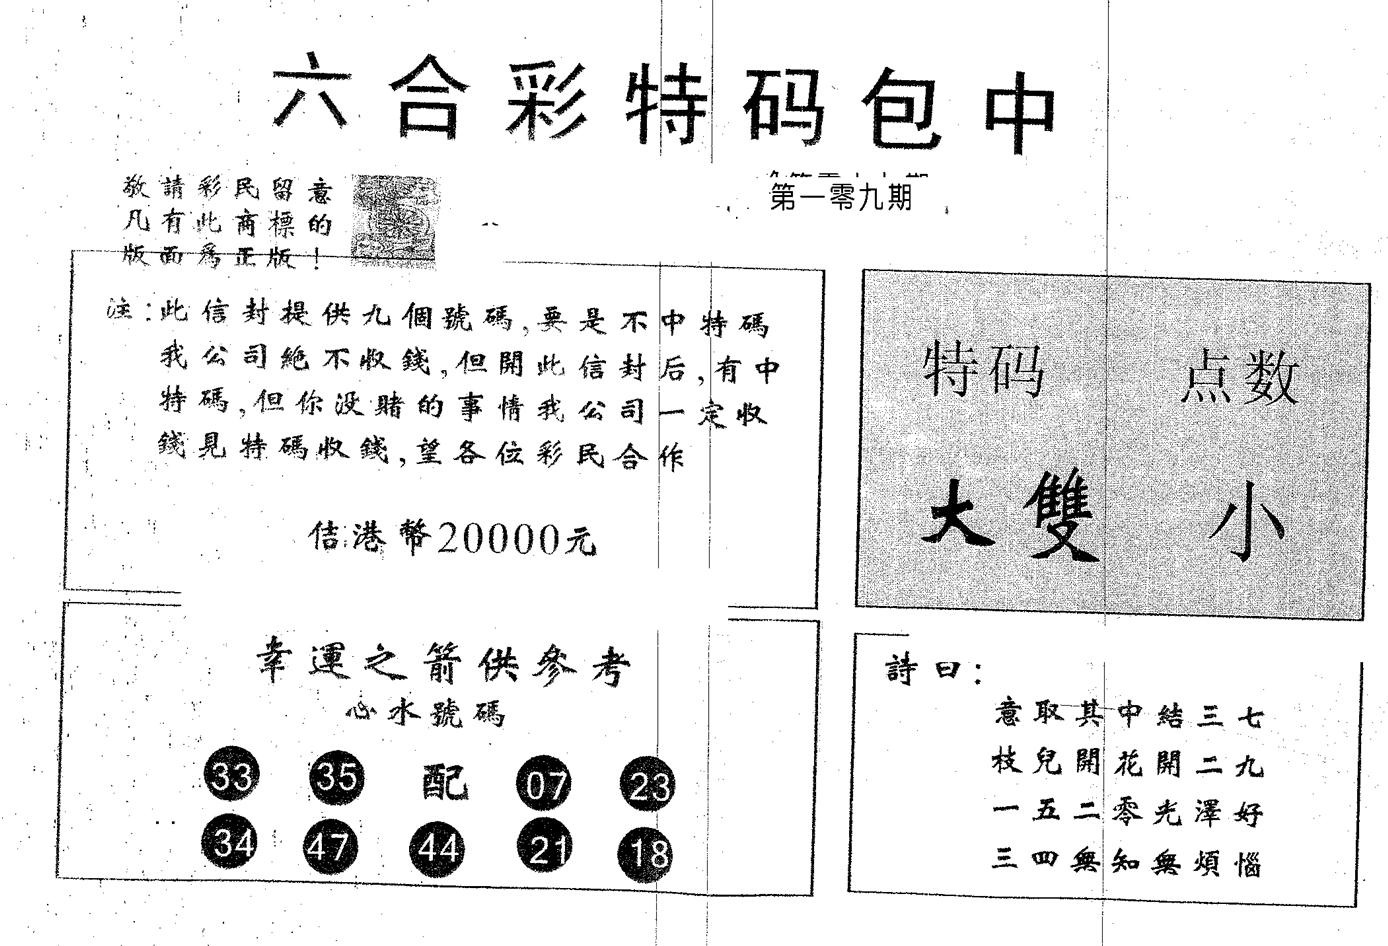 六合彩特码包中
第一零九期
敬請彩民留意
凡有此商標的
版面爲正版！
注：此信封提供九個號碼,要是不中特碼
我公司絶不收錢,但開此信封后,有中
特碼,但你没賭的事情我公司一定收
錢見特碼收錢,望各位彩民合作
佶港幣20000元
特码 点数
大雙 小
幸運之箭供參考
心水號碼
33 35 配 07 23
34 47 44 21 18
詩曰：
意取其中結三七
枝兒開花開二九
一五二零光澤好
三四無知無煩惱